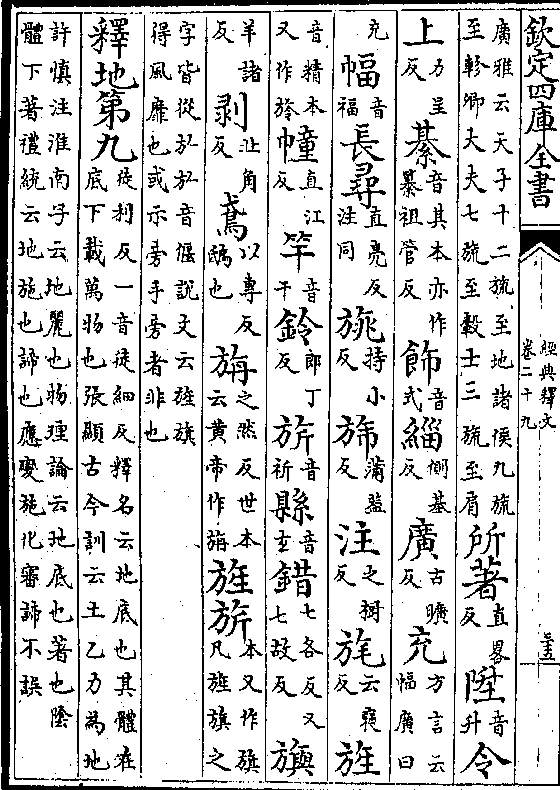 欽定四庫全書
經典釋文
卷二十九
廣雅云天子十二旒至地諸侯九旒至軫卿大夫七旒至轂士三旒至肩所著直畧反陞音升令
上力呈反綦音其本亦作纂祖管反飾音式緇側基反廣古曠反充方言云幅廣曰
充幅音福長尋直亮反注同旐持小反旆蒲蓋反注之樹反旄云襃反旌
音精本又作旍幢直江反竿音干鈴郎丁反旂音祈縣音玄錯七各反又七故反旟
羊諸反剥北角反鳶以專反鴟也旃之然反世本云黄帝作旃旌旂本又作旗凡旌旗之
字皆從㫃㫃音偃說文云旌旗得風靡也或示旁手旁者非也
釋地第九徒利反一音徒細反釋名云地底也其體在底下載萬物也張顯古今訓云土乙力為地
許慎注淮南子云地麗也物理論云地底也著也陰體下著禮統云地施也諦也應變施化審諦不誤